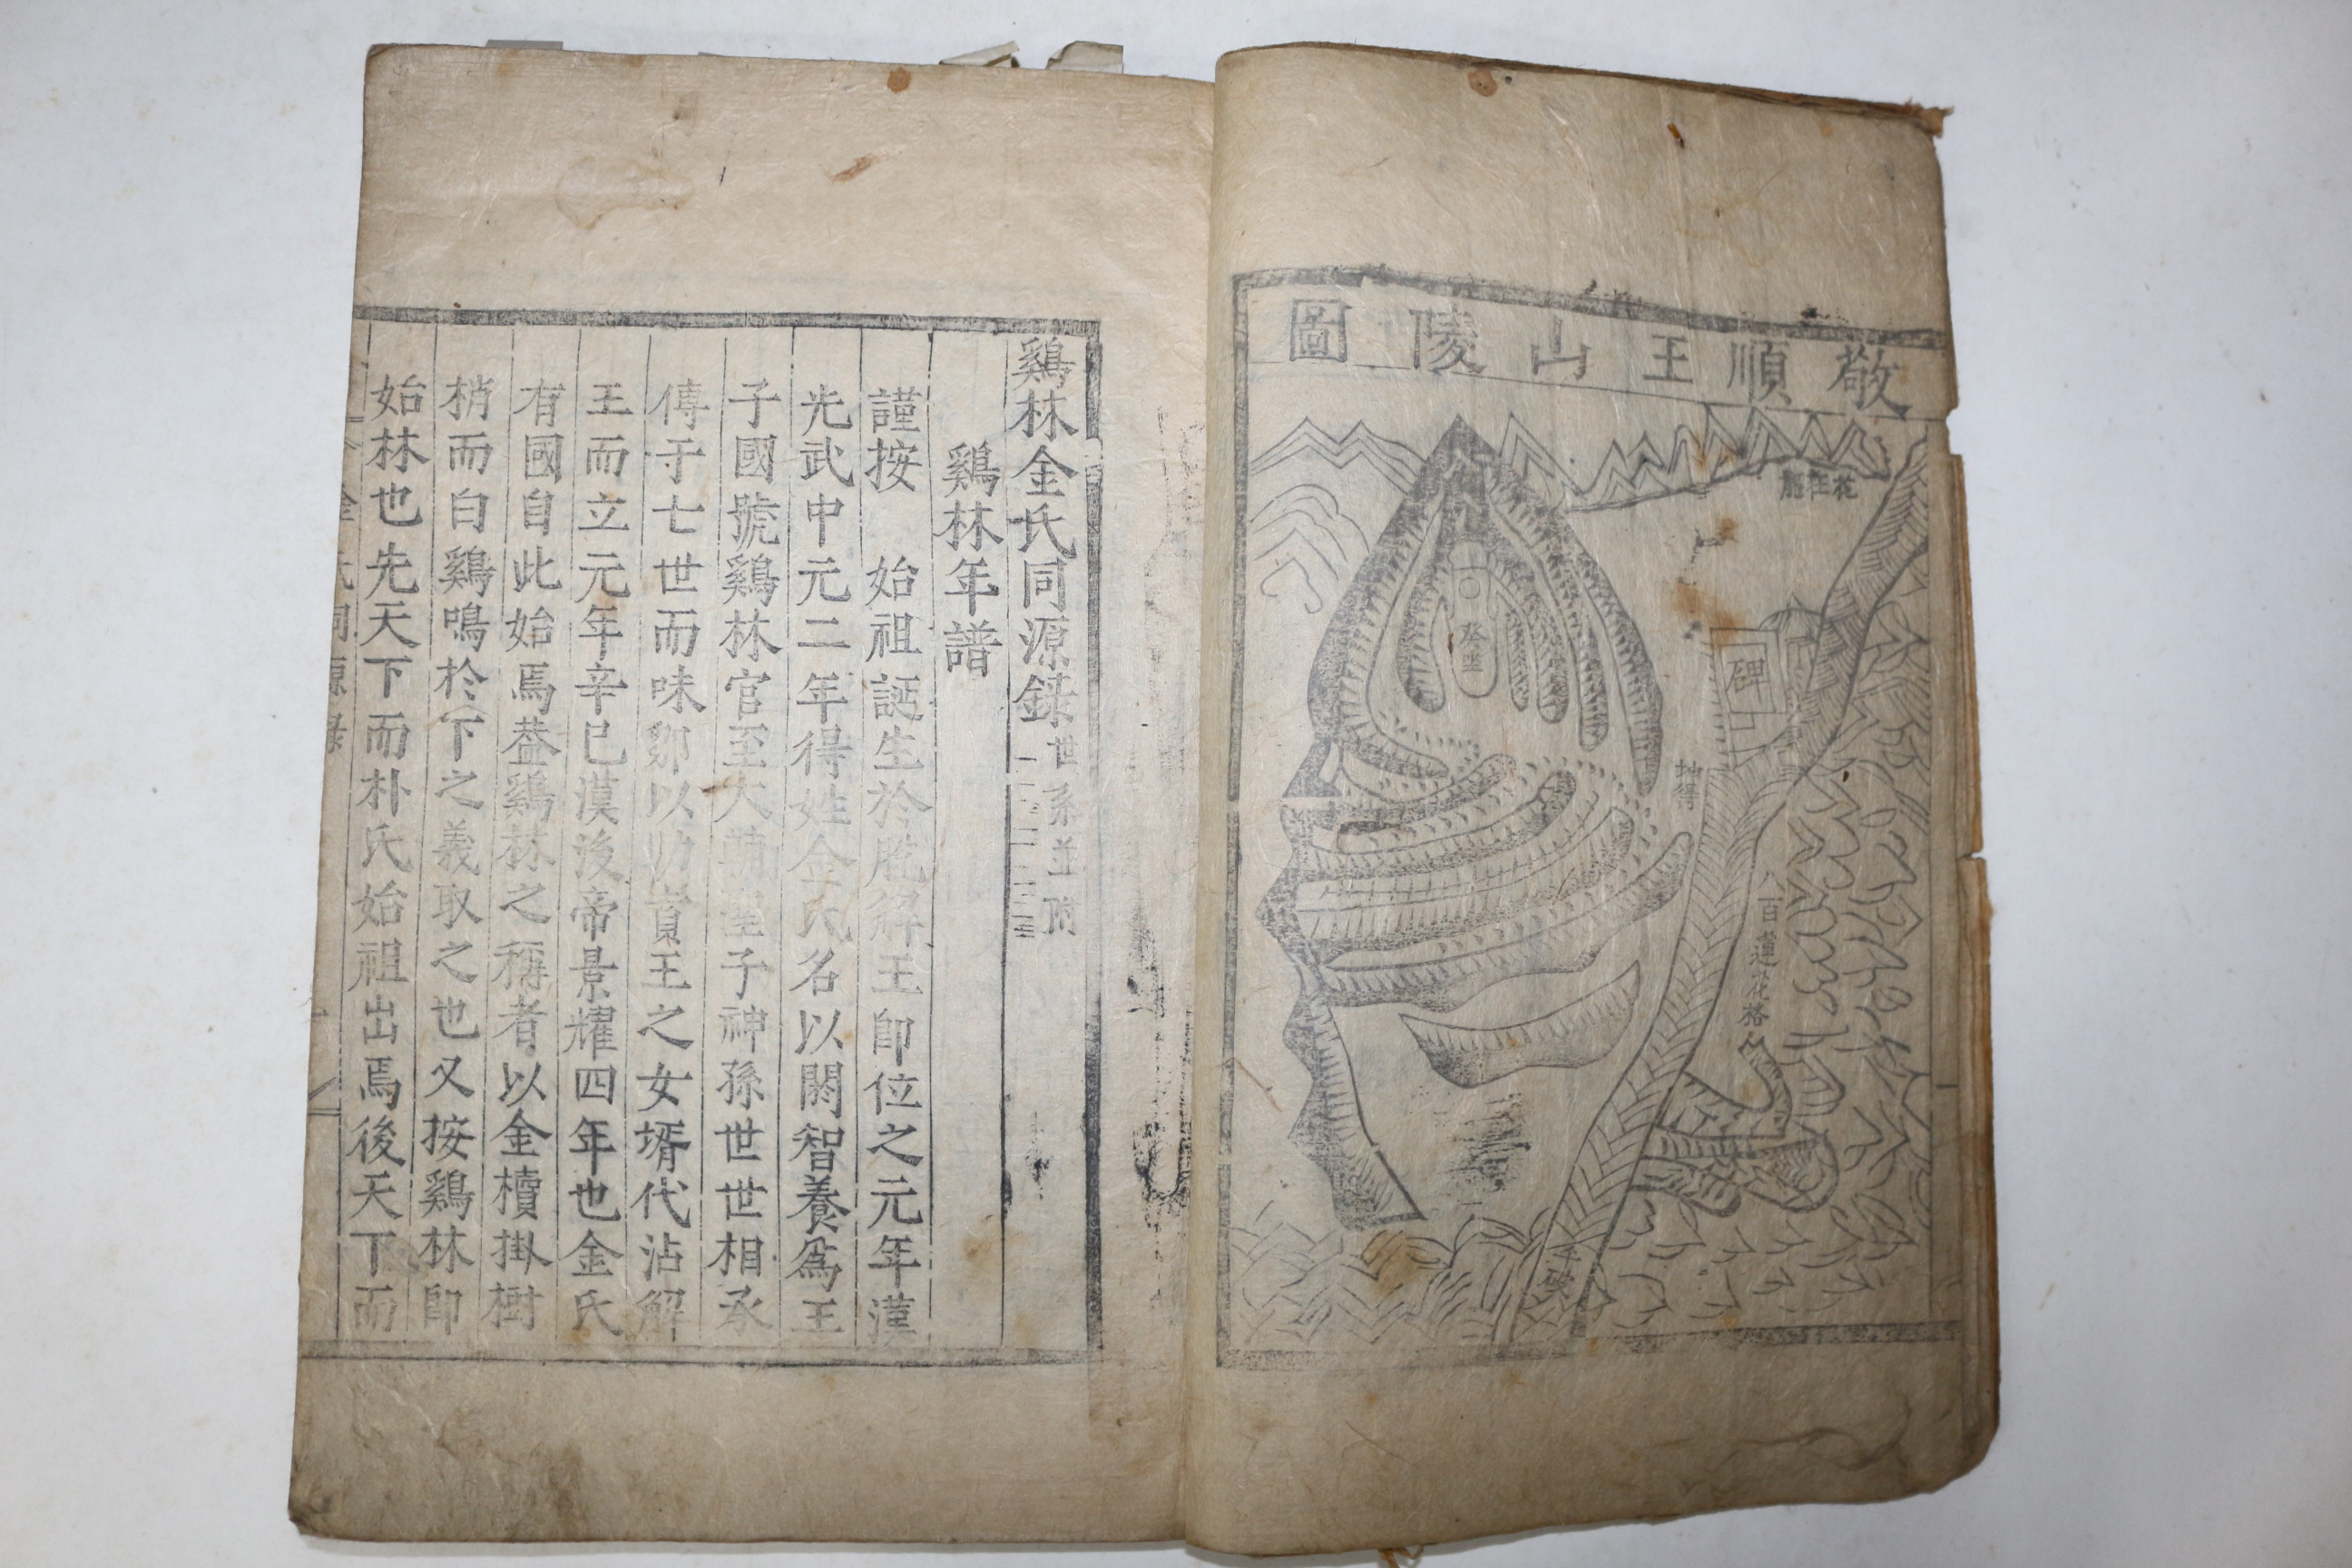 敬順王山陵圖
花在船
癸坐
碑
抽得
八百蓮花格
千破
鷄林金氏同源錄 世系並附 一二三
鷄林年譜
謹按 始祖誕生於脫解王卽位之元年漢
光武中元二年得姓金氏名以閼智養爲王
子國號鷄林官至大輔聖子神孫世世相承
傳于七世而味鄒以助賁王之女壻代沾解
王而立元年辛巳漢後帝景耀四年也金氏
有國自此始焉盖鷄林之稱者以金櫝掛樹
梢而白鷄鳴於下之義取之也又按鷄林卽
始林也先天下而朴氏始祖出焉後天下而
金氏同源錄